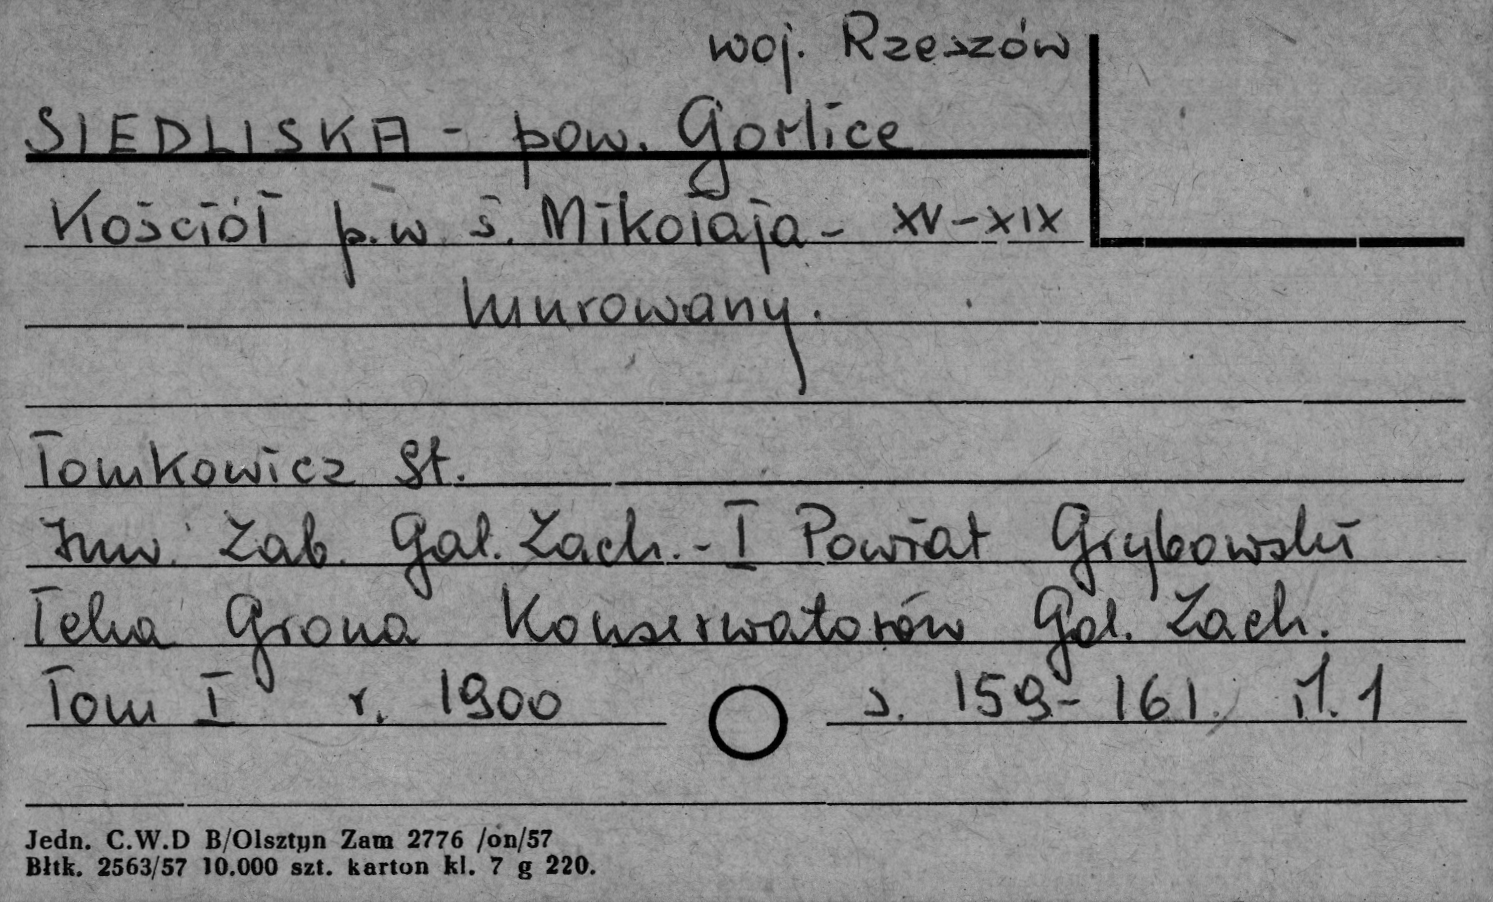 woj. Rzeszów
SIEDLISKA - pow. Gorlice
Kościół p.w. ś. Mikołaja - XV-XIX
murowany.
Tomkowicz St.
Inw. Zab. Gal. Zach. - I Powiat Grybowski
Teka Grona Konserwatorów Gal. Zach.
Tom I r. 1900 s. 159-161. il. 1
Jedn. C.W.D B/Olsztyn Zam 2776 /on/57
Błtk. 2563/57 10.000 szt. karton kl. 7 g 220.